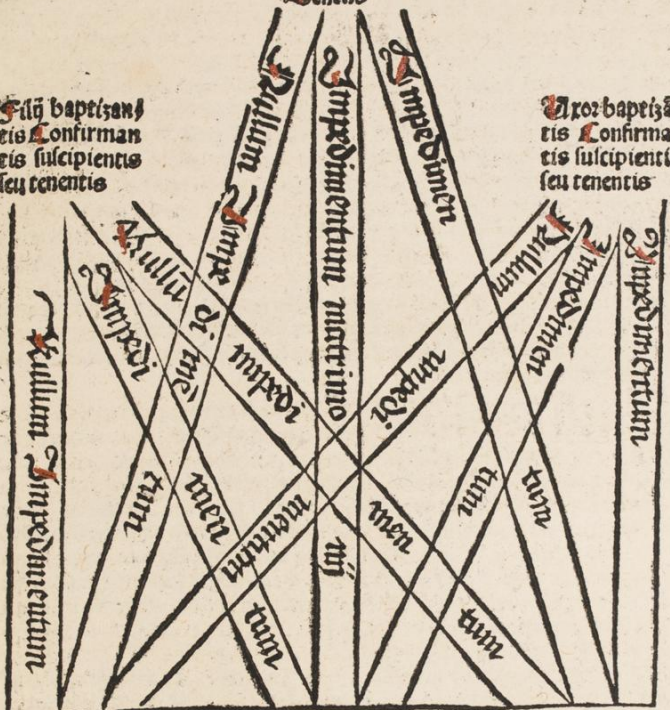 tenentis
Filij baptizan/
tis Confirman
tis suscipientis
seu tenentis
Uxor baptizā
tis Confirma
tis suscipienti
seu tenentis
Nullum Impe di mē tum
Impedimentum matrimo nij
Impedimen tum
Nullum Impedimentum
Nullum impedi mentum
Impedimen tum
Impedimentum